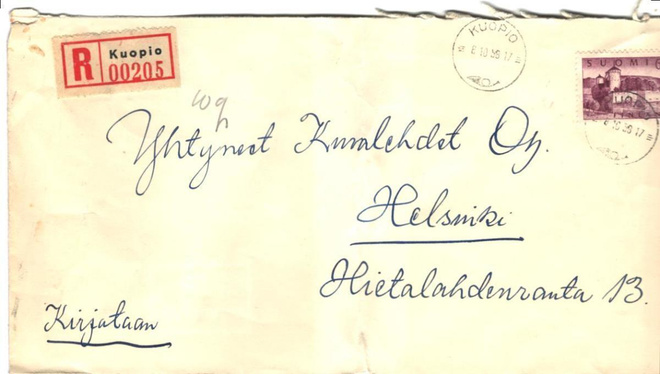 R Kuopio
00205
KUOPIO
8.10.56.17
SUOMI
Yhtyneet Kuvalehdet Oy.
Helsinki
Hietalahdenranta 13.
Kirjataan